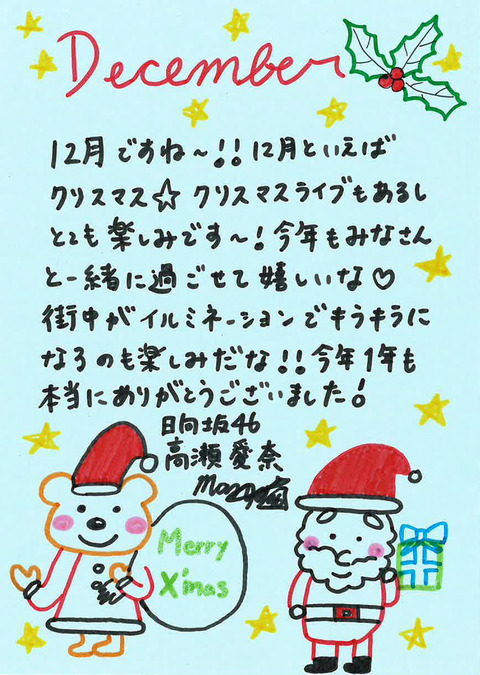 December
12月ですね〜!! 12月といえば
クリスマス☆ クリスマスライブもあるし
とても楽しみです〜! 今年もみなさん
と一緒に過ごせて嬉しいな♡
街中がイルミネーションでキラキラに
なるのも楽しみだな!! 今年1年も
本当にありがとうございました!
日向坂46
高瀬愛奈
Merry
X'mas